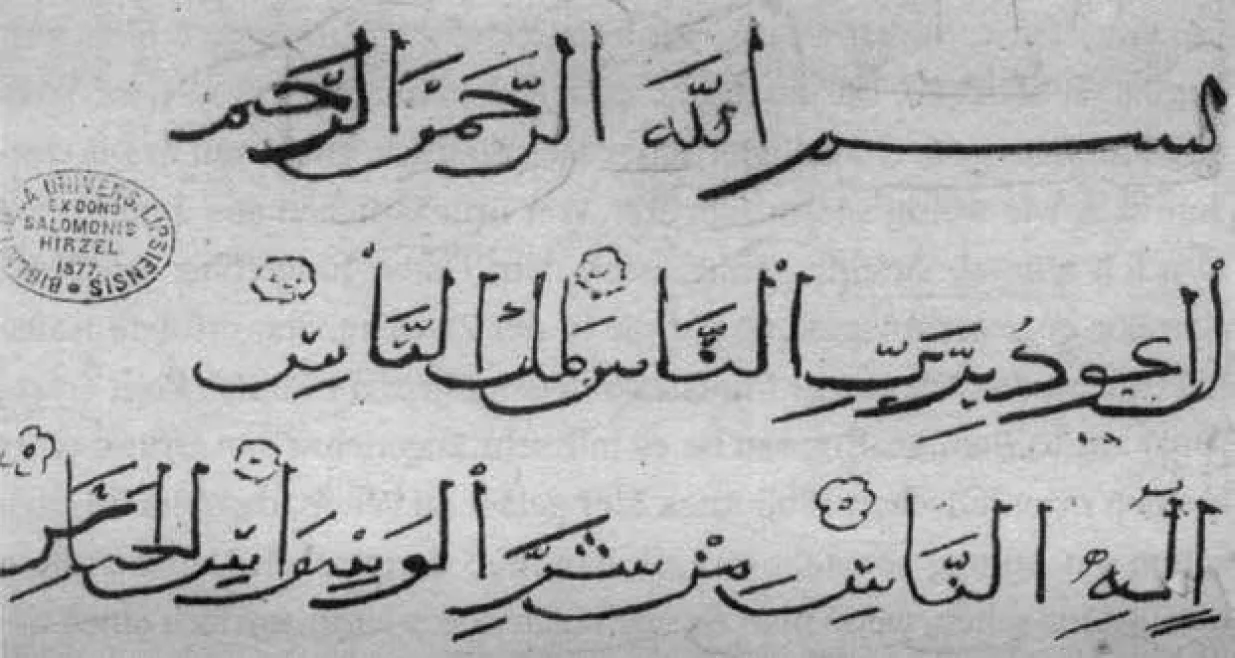 بسم الله الرّحمن الرّحيم
اعوذ بِرَبِّ النَّاسِ مَلِكِ النَّاسِ
إِلَهِ النَّاسِ مِنْ شَرِّ الوَسْوَاسِ الخَنَّاسِ
UNIVERS. LIPSIENSIS
EX DONO
SALOMONIS
HIRZEL
1877